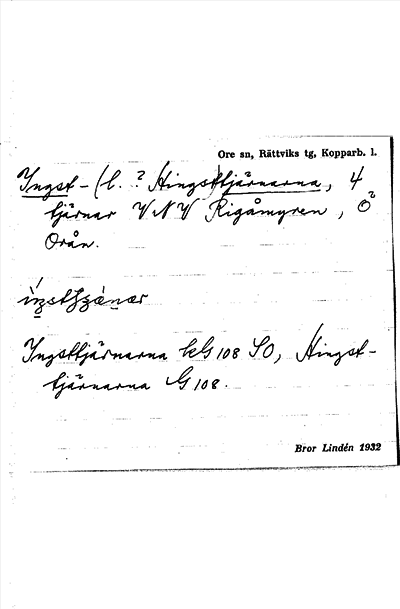 Ore sn, Rättviks tg, Kopparb. l.
Ingst- (l. ? Hingst)tjärnarna, 4
tjärnar VNV Rigåmyren, Ö
Orån.
Ingsttjärnarna G 108 SO, Hingst-
tjärnarna G 108.
Bror Lindén 1932